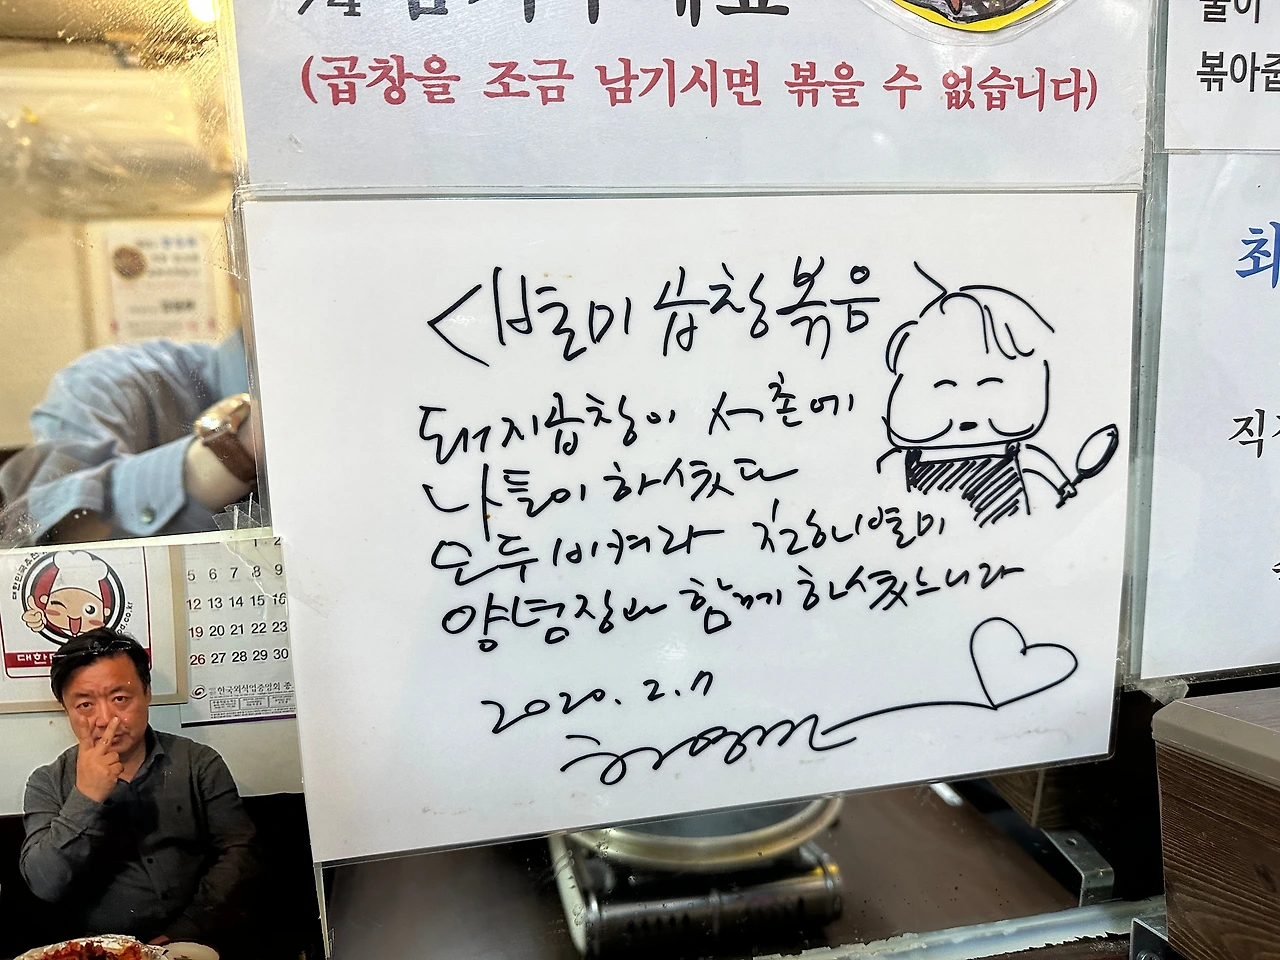 (곱창을 조금 남기시면 볶을 수 없습니다)
볶아줍
<별미 곱창볶음>
돼지곱창이 서촌에
나들이 하셨다
모두 비켜라 진하니 별미
양념장과 함께 하셨느니라
2020. 2. 7
최
직
5 6 7 8 9
12 13 14 15 16
19 20 21 22 23
26 27 28 29 30
한국외식업중앙회